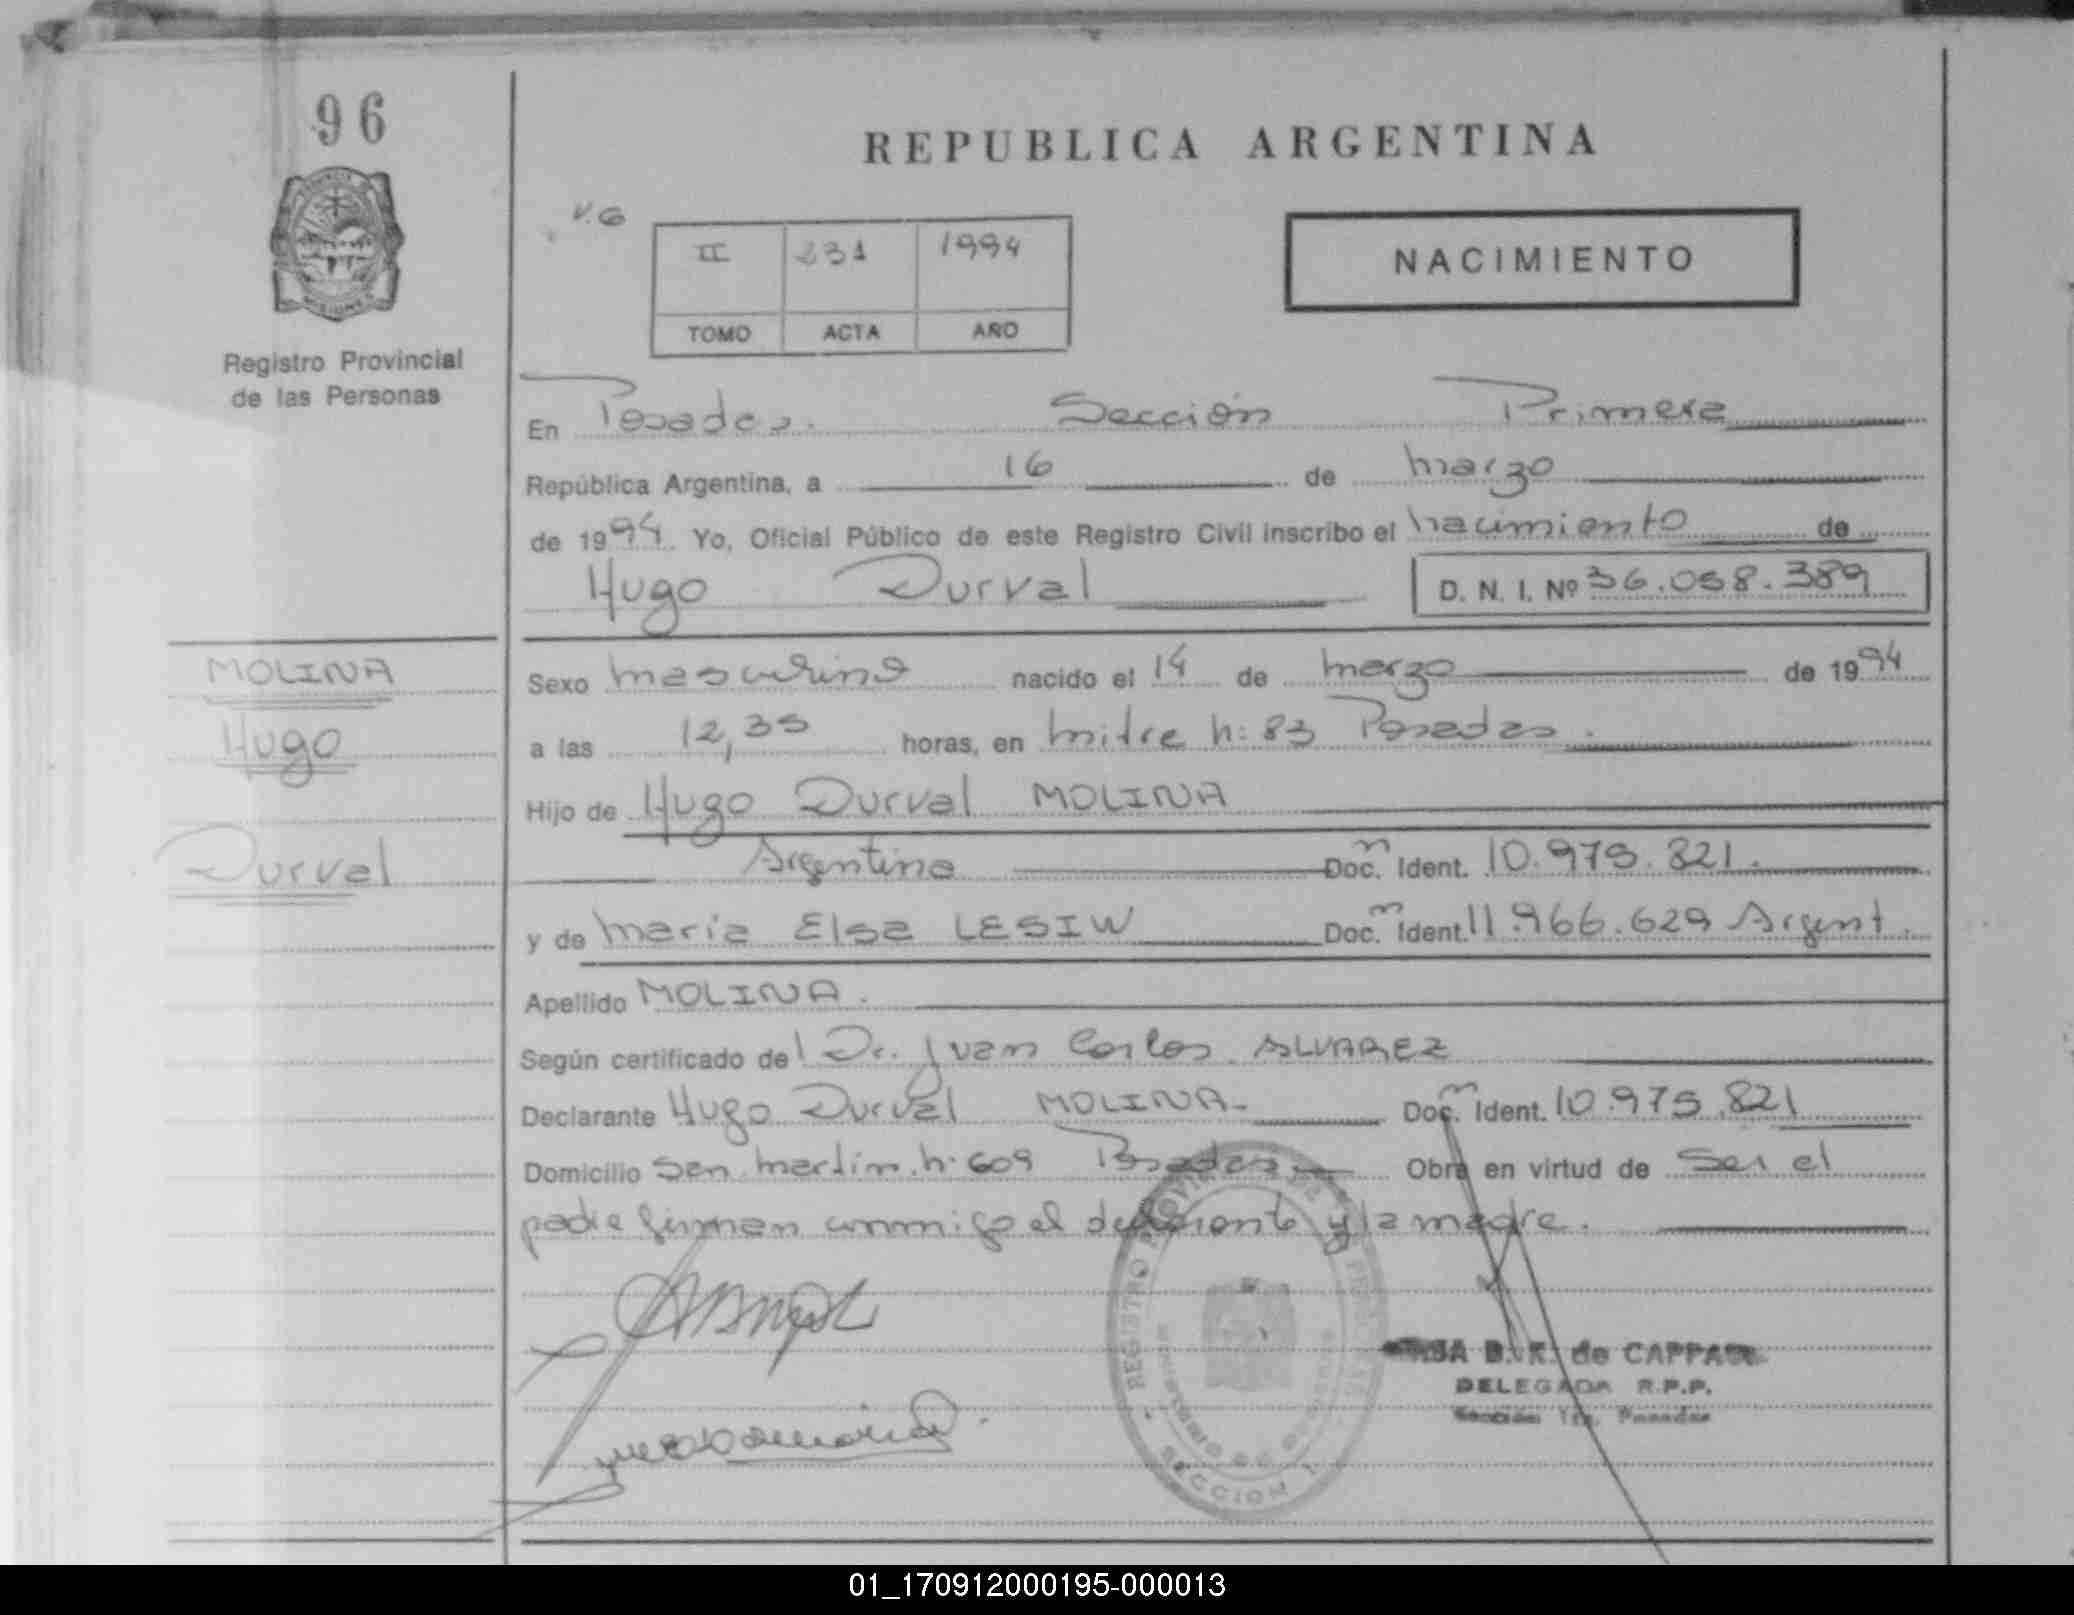 96
REPUBLICA ARGENTINA
V.G
II 231 1994
TOMO ACTA AÑO
NACIMIENTO
Registro Provincial
de las Personas
En Posadas. Sección Primera
República Argentina, a 16 de marzo
de 1994. Yo, Oficial Público de este Registro Civil inscribo el nacimiento de
Hugo Durval D. N. I. Nº 36.058.389
MOLINA
Hugo
Durval
Sexo masculino nacido el 14 de marzo de 1994
a las 12,35 horas, en mitre n: 83 Posadas.
Hijo de Hugo Durval MOLINA
Argentina Doc. Ident. 10.975.821.
y de maria Elsa LESIW Doc. Ident. 11.966.629 Argent.
Apellido MOLINA.
Según certificado del Dr. Juan Carlos ALVAREZ
Declarante Hugo Durval MOLINA- Doc. Ident. 10.975.821
Domicilio San martin n: 609 Posadas Obra en virtud de Ser el
padre firman conmigo el declarante y la madre.
REGISTRO PROVINCIAL DE LAS PERSONAS
SECCION 1
B. K. de CAPPA
DELEGADA R.P.P.
Sección 1ra. Posadas
01_170912000195-000013